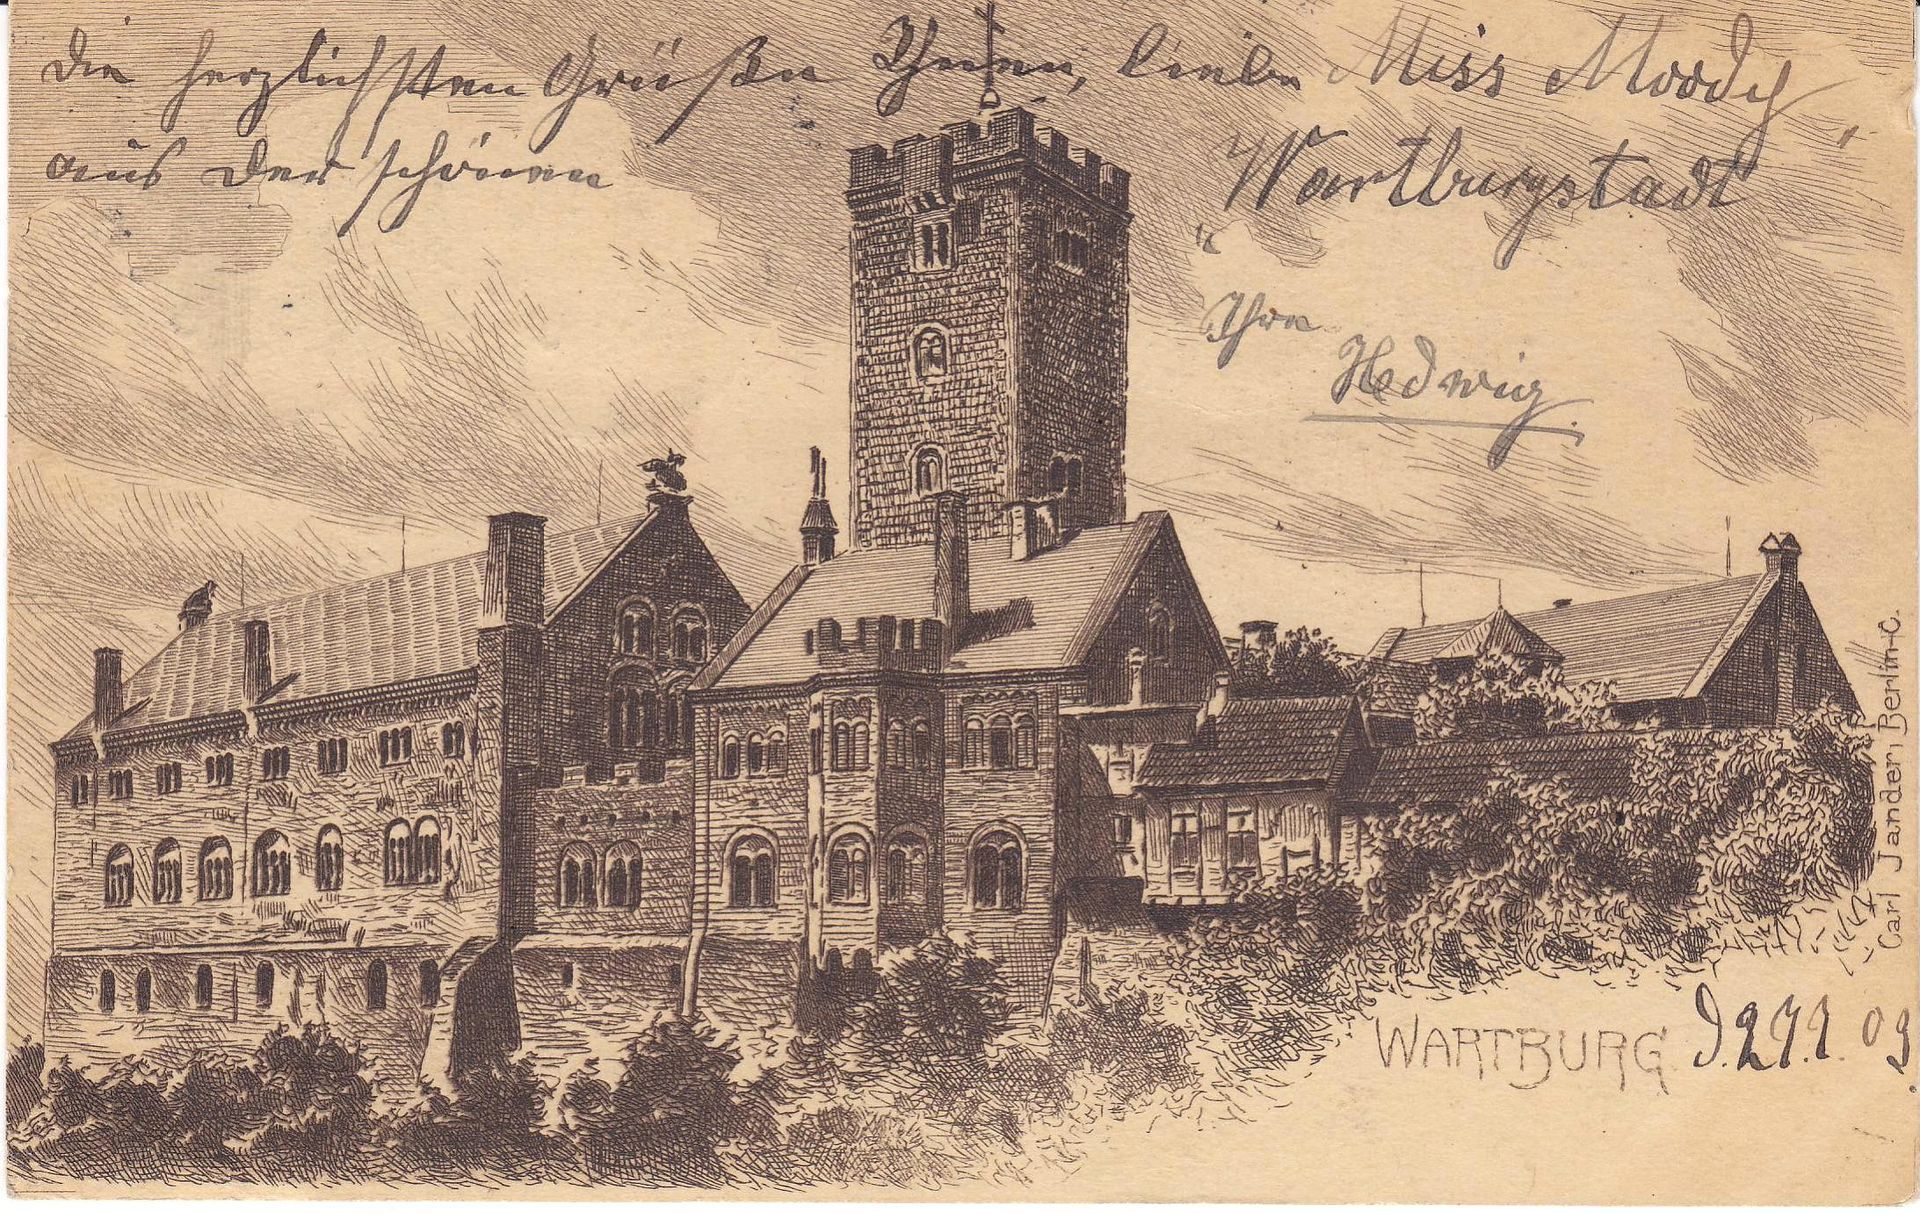 Die herzlichsten Grüße Ihnen, liebe Miss Moody
aus der schönen „Wartburgstadt“
Ihre
Hedwig.
Carl Jander, Berlin-C.
WARTBURG